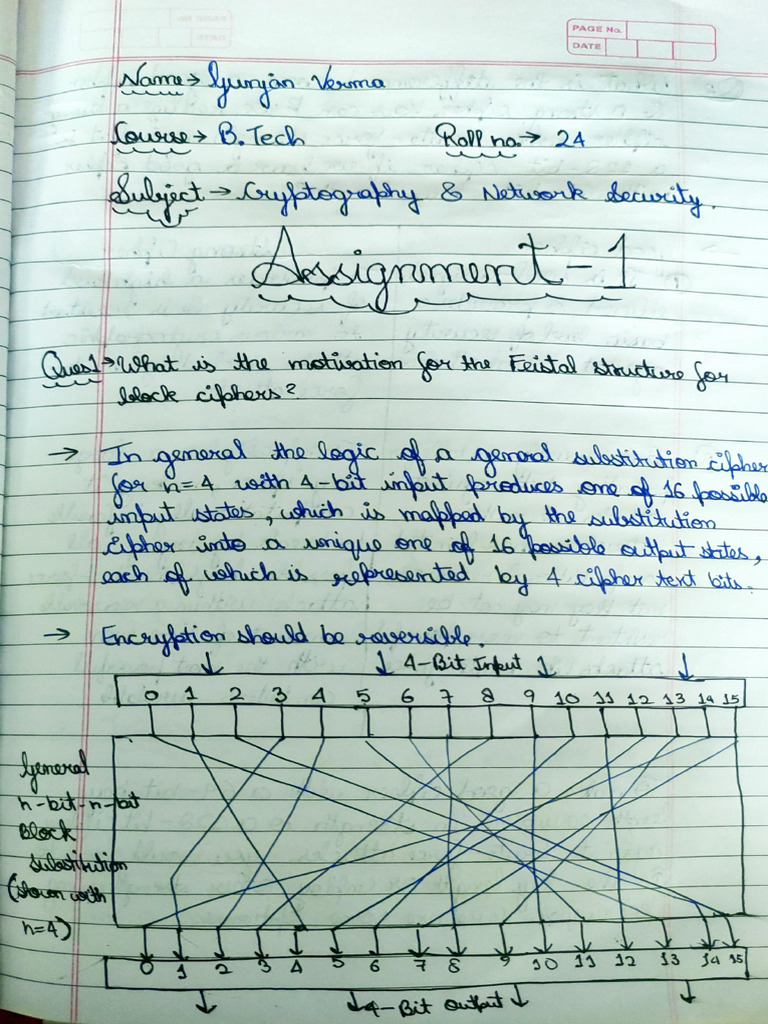 PAGE No.
DATE
Name → Gunjan Verma
Course → B.Tech Roll no. → 24
Subject → Cryptography & Network Security.
Assignment-1
Ques1→ What is the motivation for the Feistal structure for
block ciphers?
→ In general the logic of a general substitution cipher
for n=4 with 4-bit input produces one of 16 possible
input states, which is mapped by the substitution
cipher into a unique one of 16 possible output states,
each of which is represented by 4 cipher text bits.
→ Encryption should be reversible.
4-Bit Input
0 1 2 3 4 5 6 7 8 9 10 11 12 13 14 15
General
n-bit-n-bit
Block
substitution
(shown with
n=4)
0 1 2 3 4 5 6 7 8 9 10 11 12 13 14 15
4-Bit Output